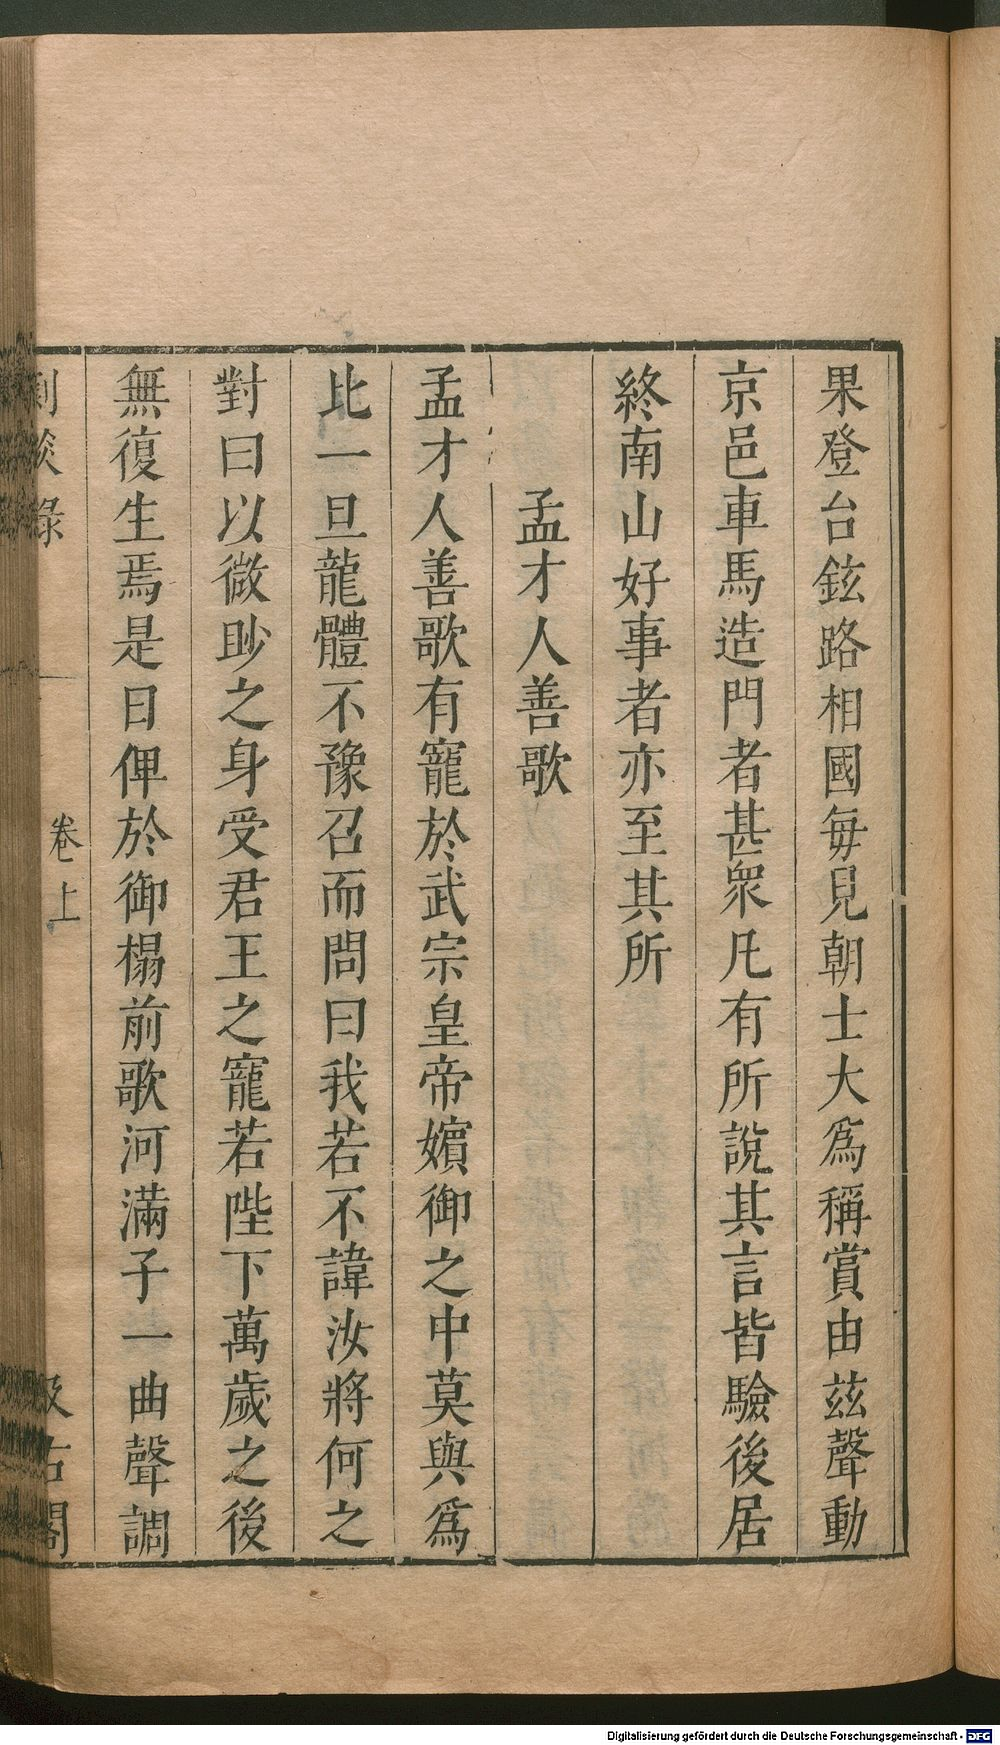 果登台鉉路相國每見朝士大爲稱賞由茲聲動
京邑車馬造門者甚衆凡有所說其言皆驗後居
終南山好事者亦至其所
孟才人善歌
孟才人善歌有寵於武宗皇帝嬪御之中莫與爲
比一旦龍體不豫召而問曰我若不諱汝將何之
對曰以微眇之身受君王之寵若陛下萬歲之後
無復生焉是日俾於御榻前歌河滿子一曲聲調
劇談錄 卷上 汲古閣
Digitalisierung gefördert durch die Deutsche Forschungsgemeinschaft - DFG